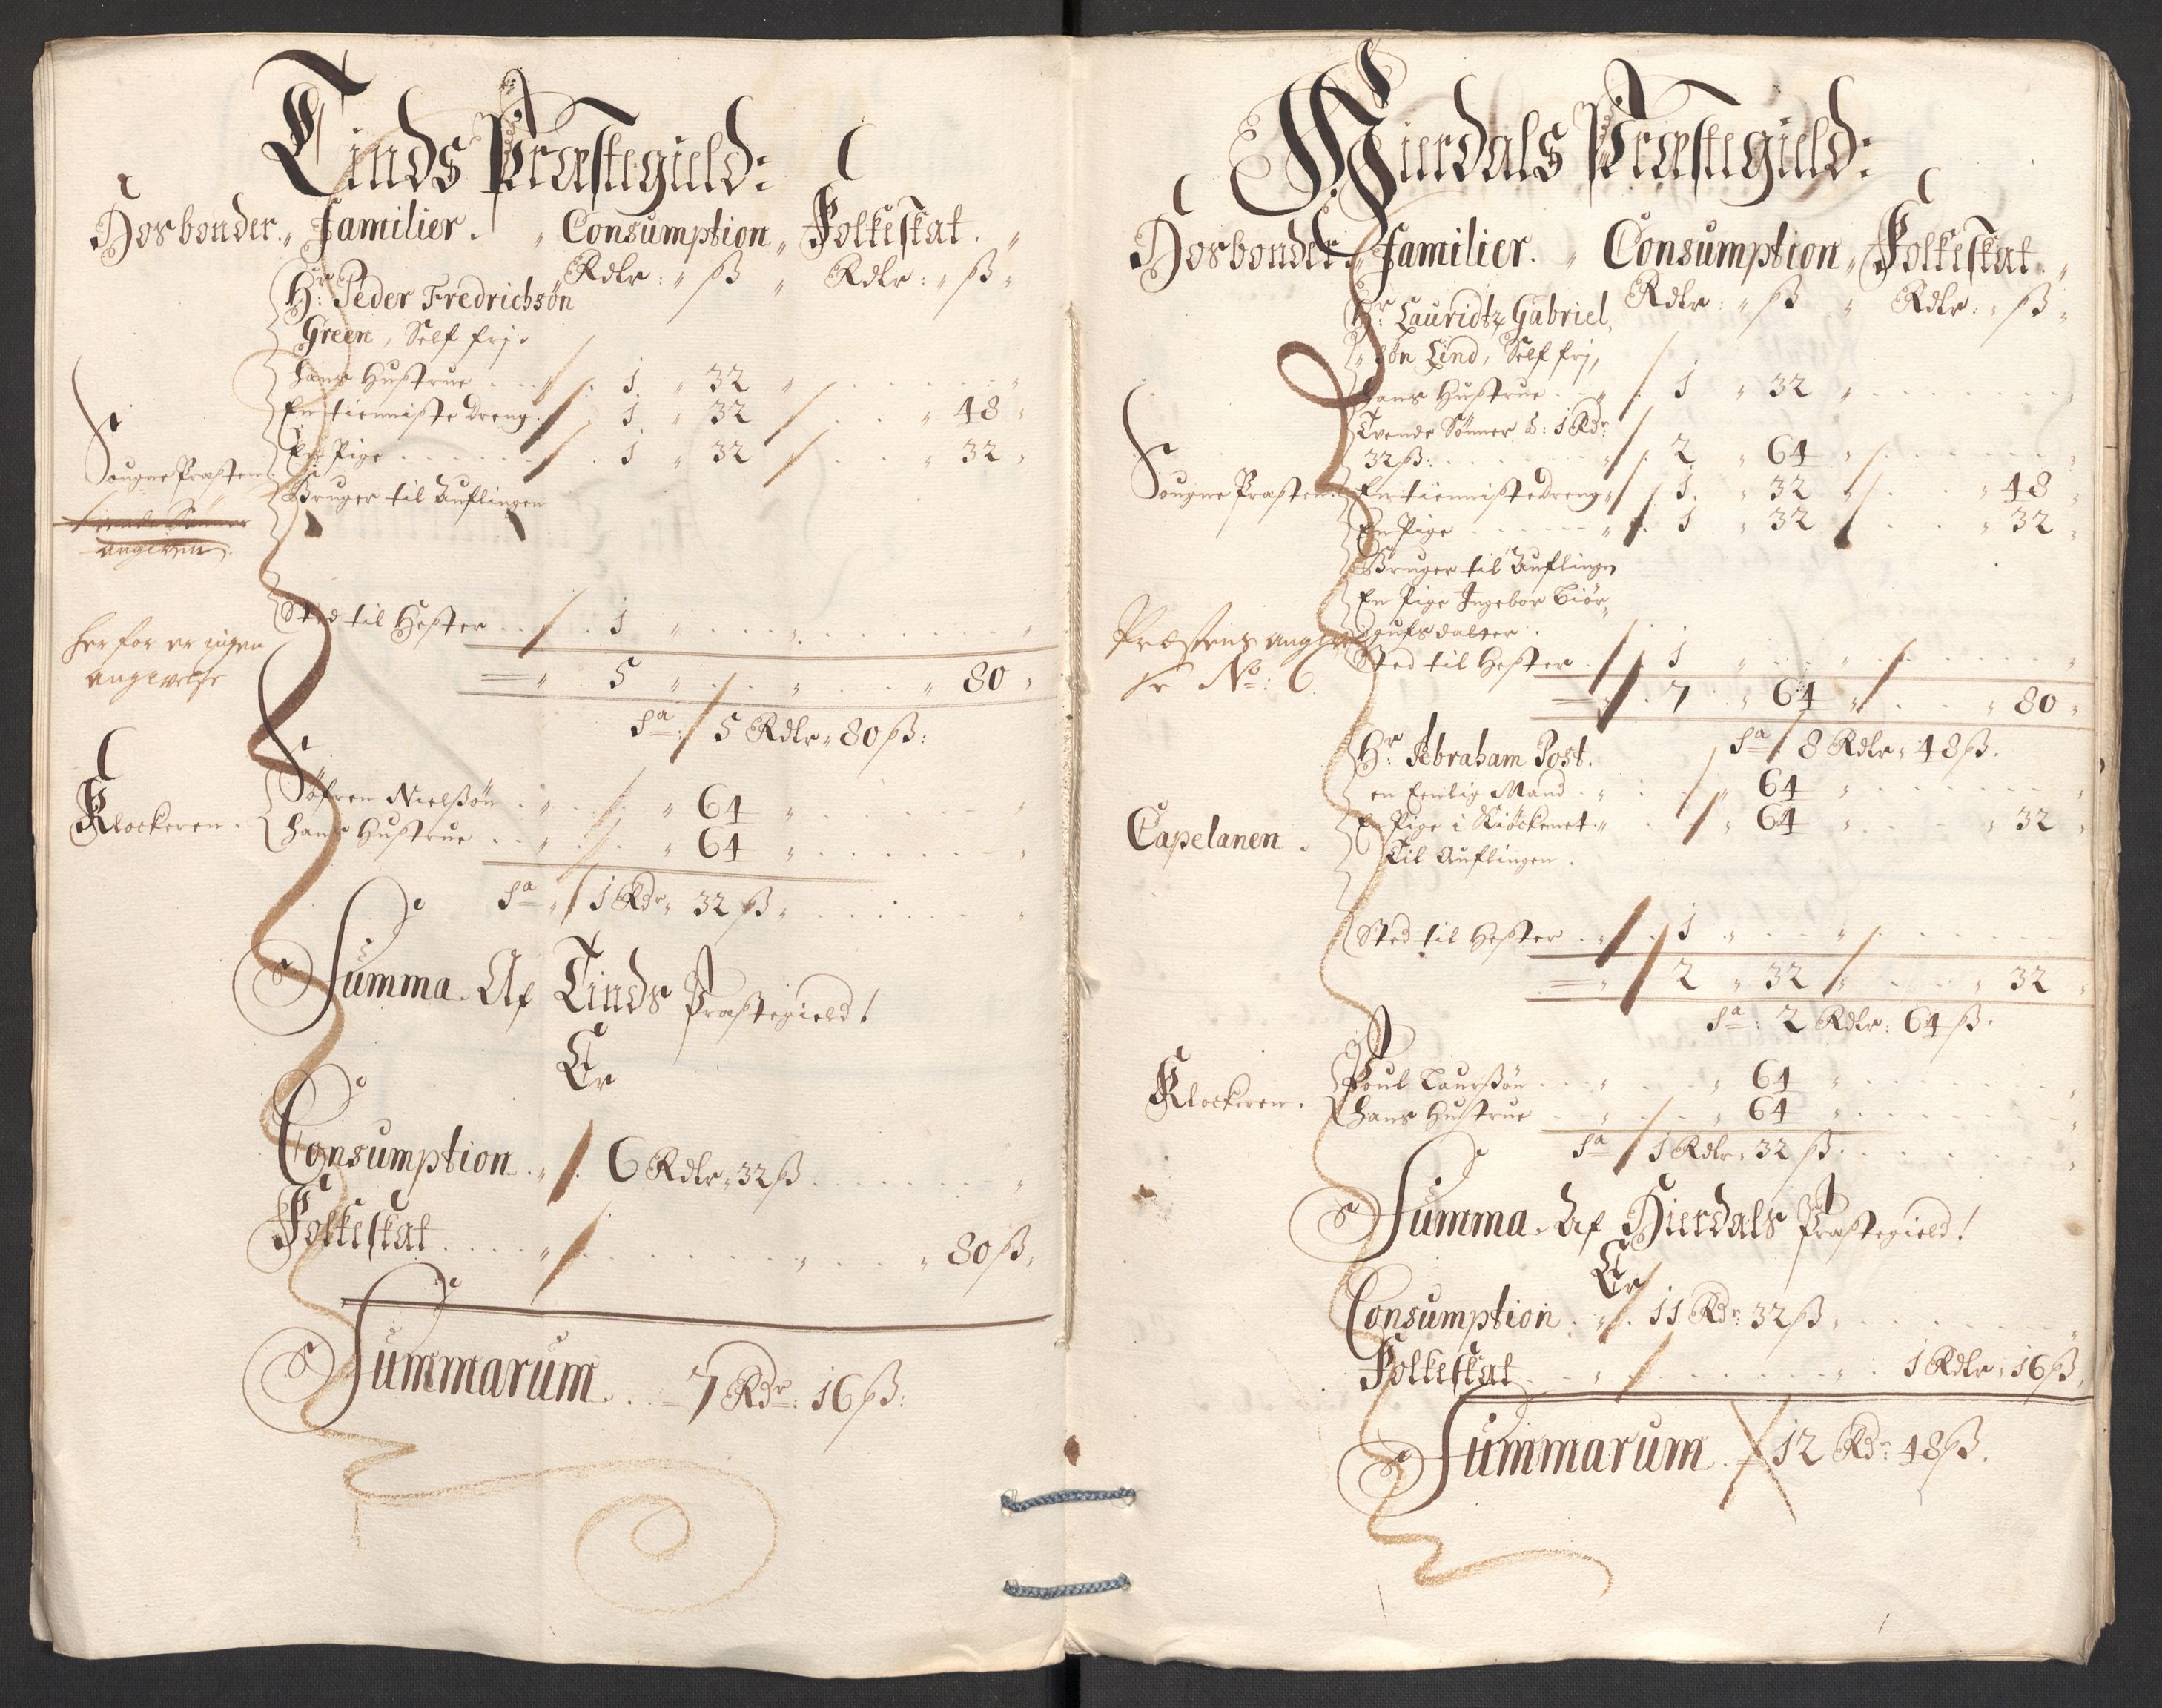 Tinds Præstegield:
Hosbonder. Familier. Consumption Folkeskat.
Rdlr: ß Rdlr: ß
Hr: Peder Fredrichsøn
Green, Self frj.
Hans Hustrue . . . 1 " 32 "
En tienniste Dreng. 1 " 32 " 48
En Pige . . . . . 1 " 32 " 32
Sougne Præsten
Bruger til Auflingen
angiven
Sted til Hester . . . 1 "
her for er ingen
angivelse
5 " " 80
Sa: 5 Rdlr. 80 ß:
Klockeren.
Søfren Nielßøn . . " 64 "
Hans Hustrue . . " 64 "
Sa 1 Rdr. 32 ß
Summa. Af Tinds Præstegield!
Er
Consumption . . 6 Rdlr. 32 ß
Folkeskat . . . . 80 ß.
Summarum . . 7 Rdr. 16 ß:
Hierdals Præstegield:
Hosbonder. Familier. Consumption Folkeskat.
Rdlr: ß Rdlr: ß
Hr: Lauridtz Gabriel,
søn Lind, Self frj,
Hans Hustrue . . 1 " 32 "
Tvende Sønner á: 1 Rdr
32 ß: . . . . 2 " 64 "
Sougne Præsten.
En tienniste Dreng 1. " 32 " 48
En Pige . . . . 1 " 32 " 32
Bruger til Auflingen
En Pige Ingebor Biør,
gufsdatter.
Præstens angiv
se No: 6.
Sted til Hester . 1 "
7 " 64 " 80
Sa 8 Rdlr. 48 ß.
Hr: Abraham Post.
en Eenlig Mand . . 64 "
Capelanen.
En Pige i Kiøckenet . " 64 " 32
Til Auflingen.
Sted til Hester . . 1 "
2 " 32 " 32
Sa: 2 Rdlr: 64 ß.
Klockeren.
Poul Laurßøn . . " 64 "
Hans Hustrue . . " 64 "
Sa 1 Rdlr. 32 ß.
Summa. Af Hierdals Præstegield!
Er
Consumption . . 11 Rdr: 32 ß
Folkeskat . . . . 1 Rdlr. 16 ß.
Summarum . 12 Rdr: 48 ß.